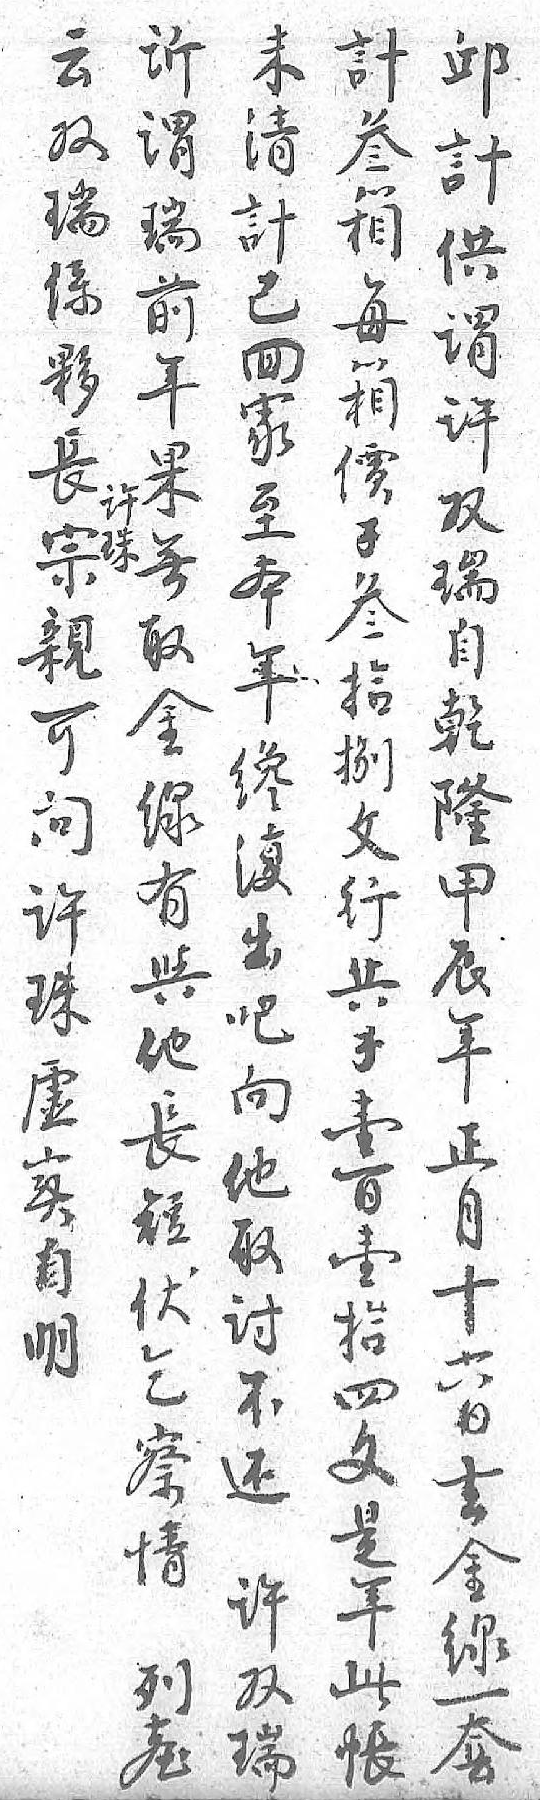 邱計供謂許双瑞自乾隆甲辰年正月十六日去金線一套
計叁箱每箱價子叁拾捌文行共子壹百壹拾四文是年此帳
未清計已囬家至本年纔復出吧向他取討不还 許双瑞
訴謂瑞前年果無取金線有與他長短伏乞察情 列台
許珠
云双瑞係夥長宗親可问許珠虛寔自明